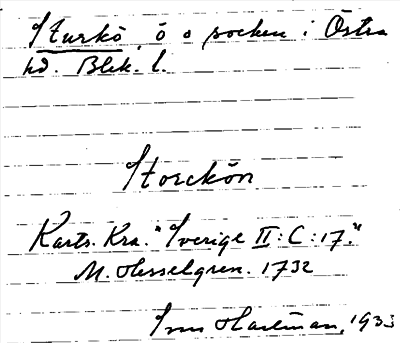 Sturkö, ö o socken i Östra
hd. Blek. l.
Storckön
Kartv. Kra. "Sverige II:C:17."
M. Hesselgren. 1732
Hartman, 1933